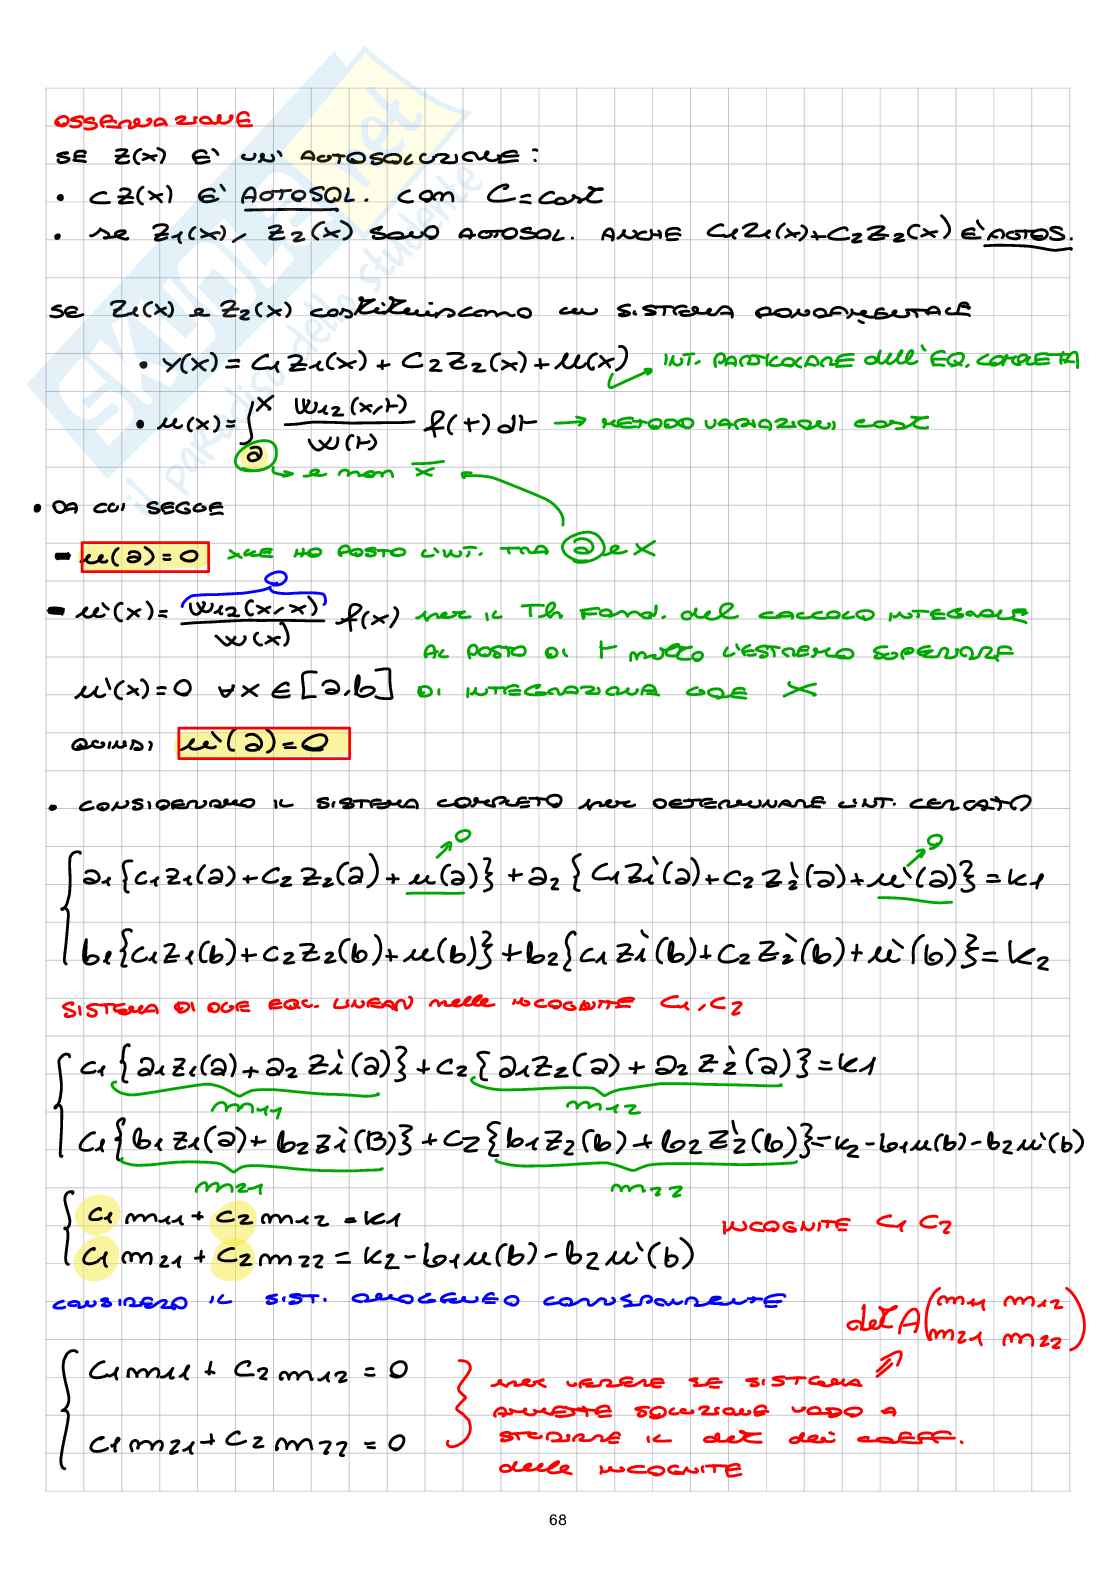 OSSERVAZIONE
SE Z(x) E' UN' AUTOSOLUZIONE:
• C Z(x) E' AUTOSOL. CON C = cost
• se Z1(x), Z2(x) SONO AUTOSOL. ANCHE C1Z1(x)+C2Z2(x) E' AUTOS.
SE Z1(x) e Z2(x) costituiscono un SISTEMA FONDAMENTALE
• Y(x) = C1Z1(x) + C2Z2(x) + u(x) INT. PARTICOLARE dell'EQ. COMPLETA
• u(x) = ∫ₐˣ W12(x,t) / W(t) f(t) dt → METODO VARIAZIONI cost
a → e non x̄
• DA CUI SEGUE
- u(a) = 0 xke HO POSTO L'INT. TRA a e x
0
- u'(x) = W12(x,x) / W(x) f(x) per il Th Fond. del CALCOLO INTEGRALE
AL POSTO DI t metto L'ESTREMO SUPERIORE
u'(x) = 0 ∀x ∈ [a,b] DI INTEGRAZIONE CIOE' x
QUINDI u'(a) = 0
• CONSIDERIAMO IL SISTEMA COMPLETO per DETERMINARE L'INT. CERCATO
0 0
a1{c1z1(a)+c2z2(a)+u(a)} + a2{c1z1'(a)+c2z2'(a)+u'(a)} = k1
b1{c1z1(b)+c2z2(b)+u(b)}+b2{c1z1'(b)+c2z2'(b)+u'(b)} = k2
SISTEMA DI DUE EQZ. LINEARI nelle INCOGNITE C1, C2
c1{a1z1(a)+a2z1'(a)}+c2{a1z2(a)+a2z2'(a)}=k1
m11 m12
c1{b1z1(a)+b2z1'(B)}+c2{b1z2(b)+b2z2'(b)}=k2-b1u(b)-b2u'(b)
m21 m22
c1 m11 + c2 m12 = k1
INCOGNITE C1 C2
c1 m21 + c2 m22 = k2-b1u(b)-b2u'(b)
CONSIDERO IL SIST. OMOGENEO CORRISPONDENTE
det A (m11 m12
m21 m22)
c1 m11 + c2 m12 = 0
per VEDERE SE SISTEMA
AMMETTE SOLUZIONE VADO A
c1 m21 + c2 m22 = 0
STUDIARE IL det dei COEFF.
delle INCOGNITE
68
SKUOLA.net
il paradiso dello studente